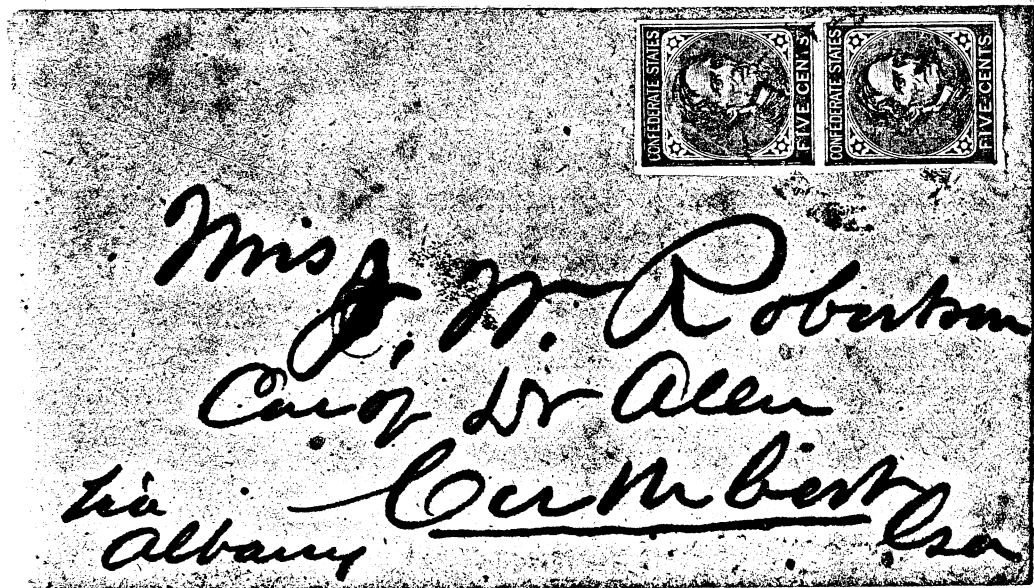 CONFEDERATE STATES
FIVE CENTS
CONFEDERATE STATES
FIVE CENTS
Mrs J. W. Robertson
Care of Dr Allen
Cuthbert Ga
via
Albany